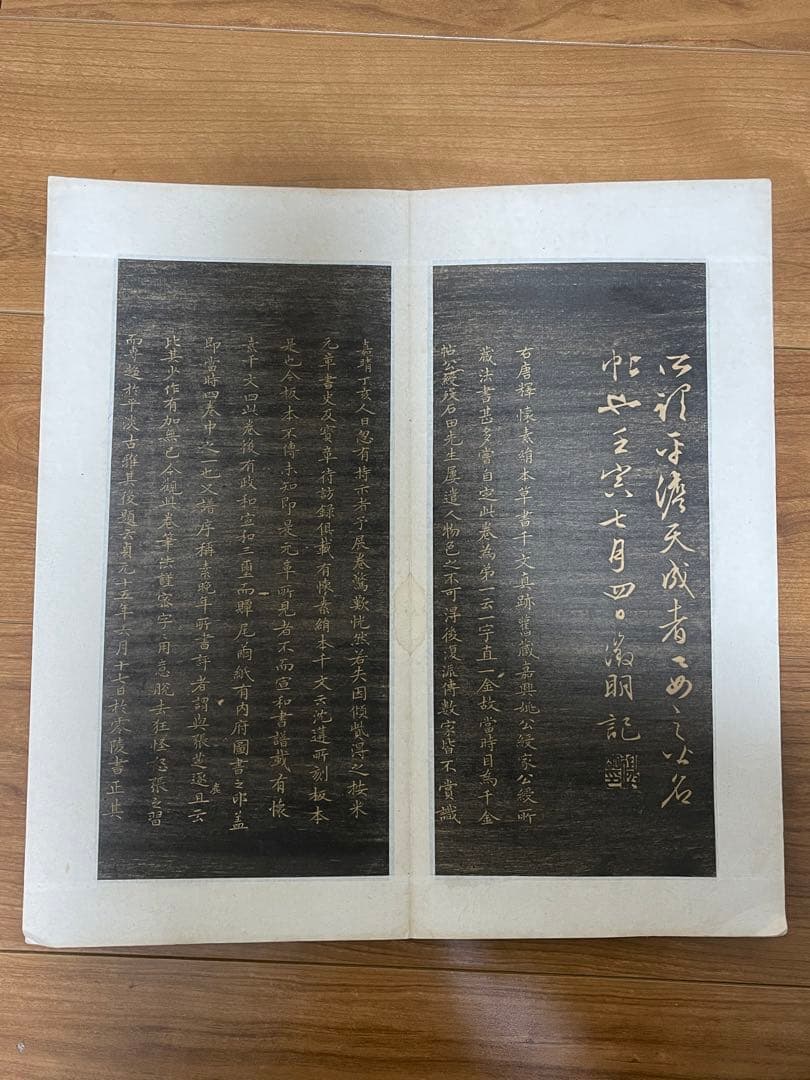 所謂平澹天成者
帖也壬寅七月四日徵明記
右唐釋懷素絹本草書千文真跡舊藏嘉興姚公綬家公綬所
蔵法書甚多嘗自定此卷為弟一云一字直一金故當時目為千金
帖公綬殁石田先生屢遣人物色之不可得後復流傳數家皆不賞識
嘉靖丁亥人日忽有持示者予展卷驚歎恍然若失因傾貲得之按米
元章書史及寳章待訪錄俱載有懷素絹本千文云沈遘所刻板本
是也今板本不傳未知即是元章所見者不而宣和書譜載有懷
素千文四此卷後有政和宣和三璽而贉尾兩紙有內府圖書之印蓋
即當時四卷中之一也又譜序稱素晚年所書評者謂與張芝逐且云
比其少作有加無已今觀此卷筆法謹密字字用意脫去狂怪怒張之習
而專趨於平淡古雅其後題云貞元十五年六月十七日於零陵書正其